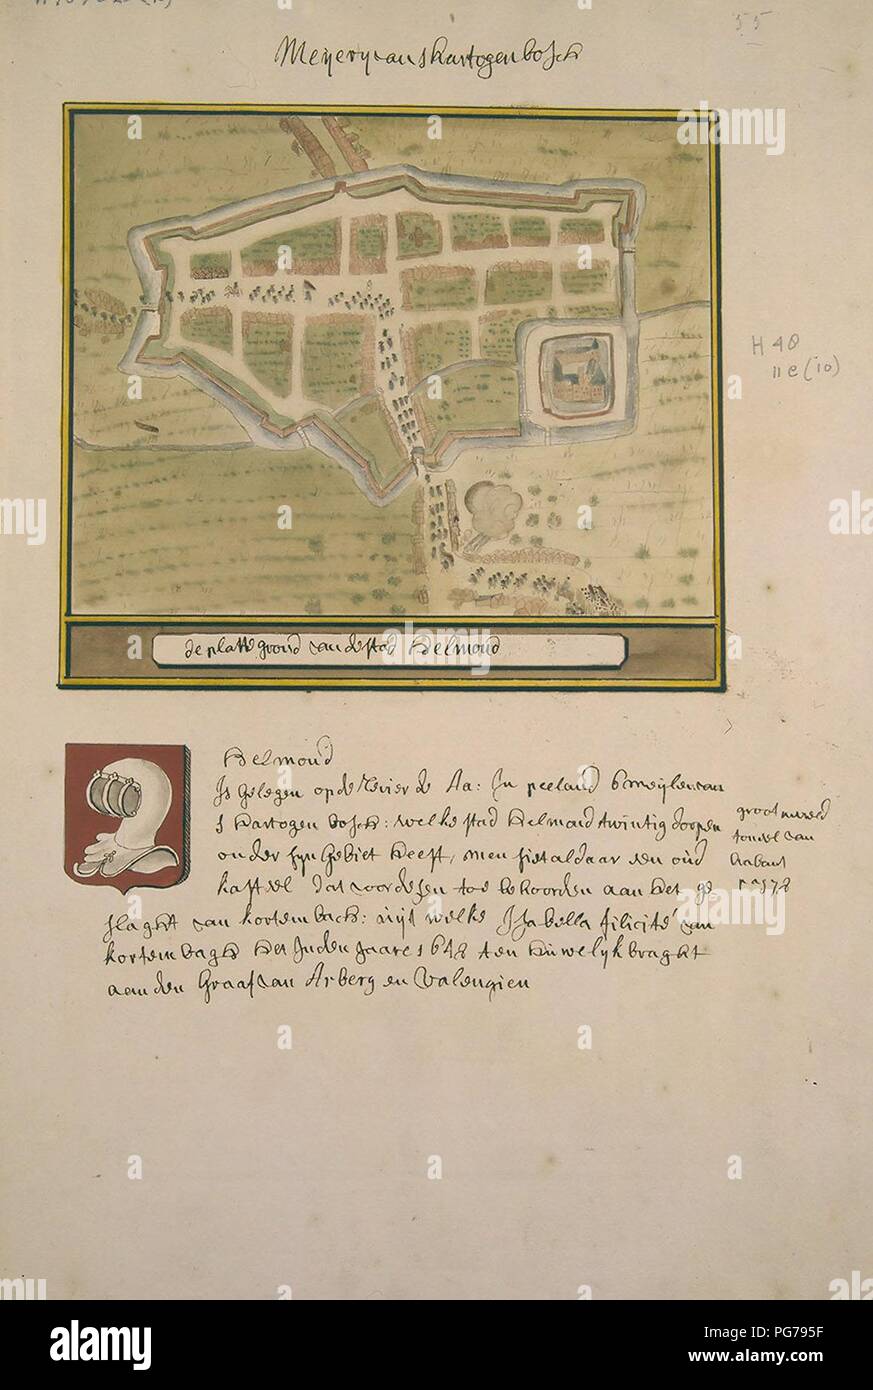 55
Meyery van sHartogenbosch
H 48
11e (10)
de platte grond van de stad Helmond
Helmond
Is gelegen op de Revier de Aa: In peeland 6 meijlen van
s Hartogen bosch: welke stad Helmond twintig dorpen
onder sijn gebiet heeft, men siet aldaar een oud
kasteel dat voor desen toe behoorden aan het ge
slaght van kortembach: uijt welke Isabella filicité van
kortembagh het Inden Jaare 1648 ten huwelijk braght
aan den Graaf van Arberg en valengien
groot
toneel van
brabant
alamy
PG795F
www.alamy.com